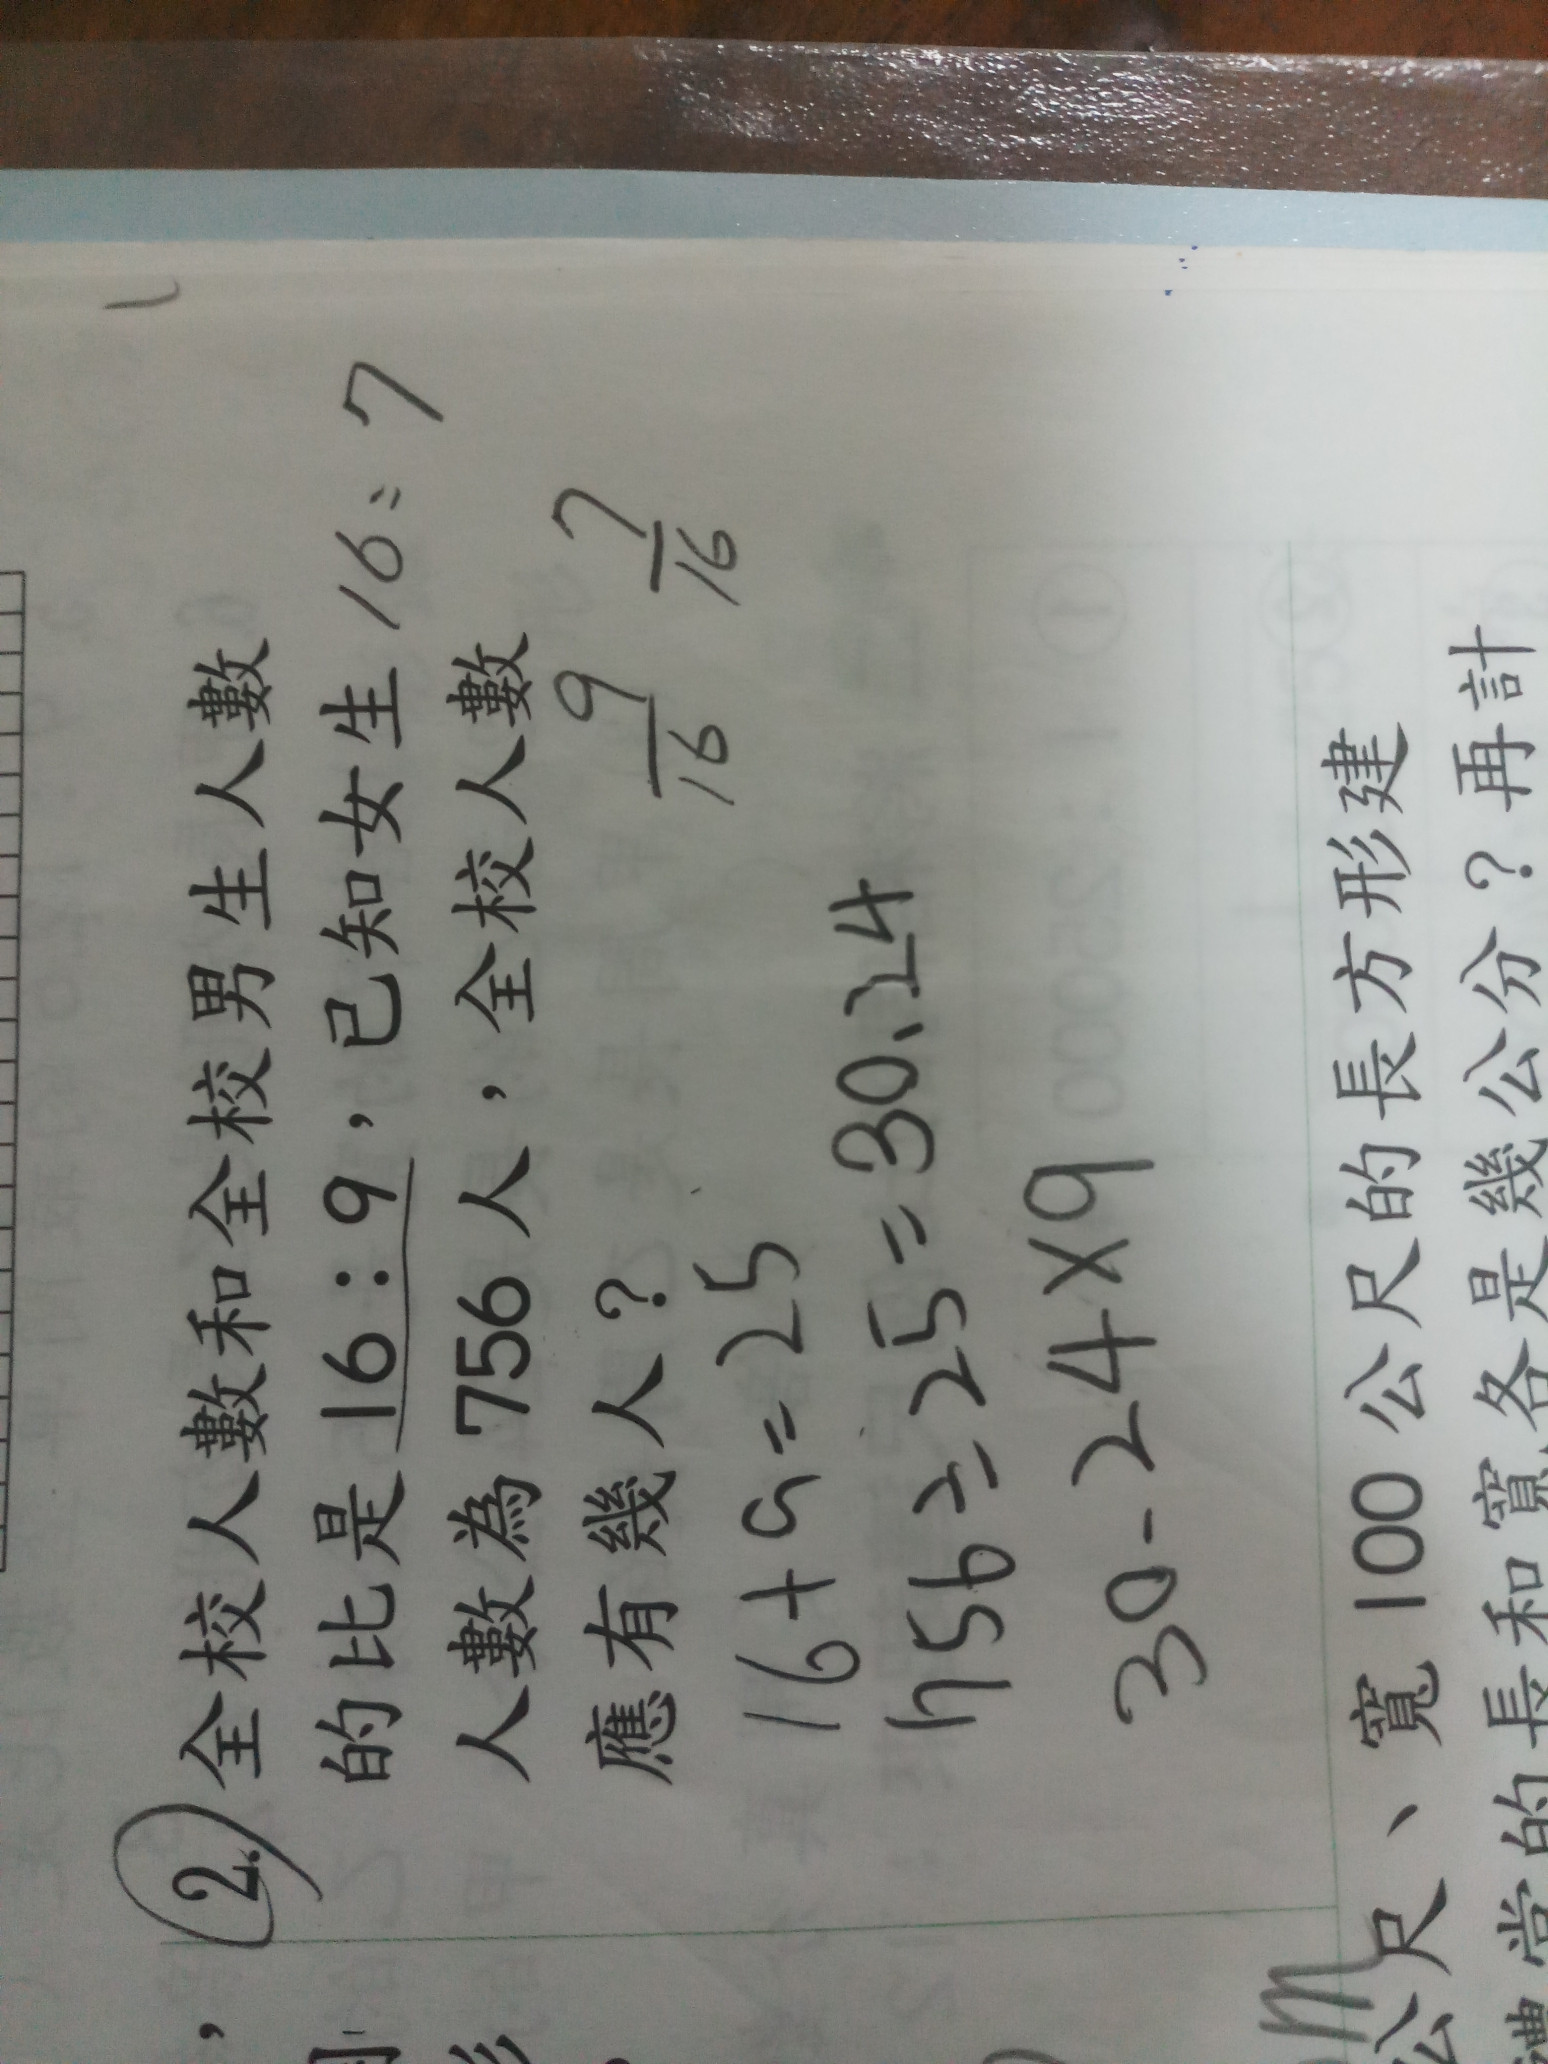 2. 全校人數和全校男生人數
的比是16:9，已知女生 16:7
人數為756人，全校人數
應有幾人？
9/16 7/16
16+9=25
756÷25=30.24
30-24×9
公尺、寬100公尺的長方形建
禮堂的長和寬各是幾公分？再計